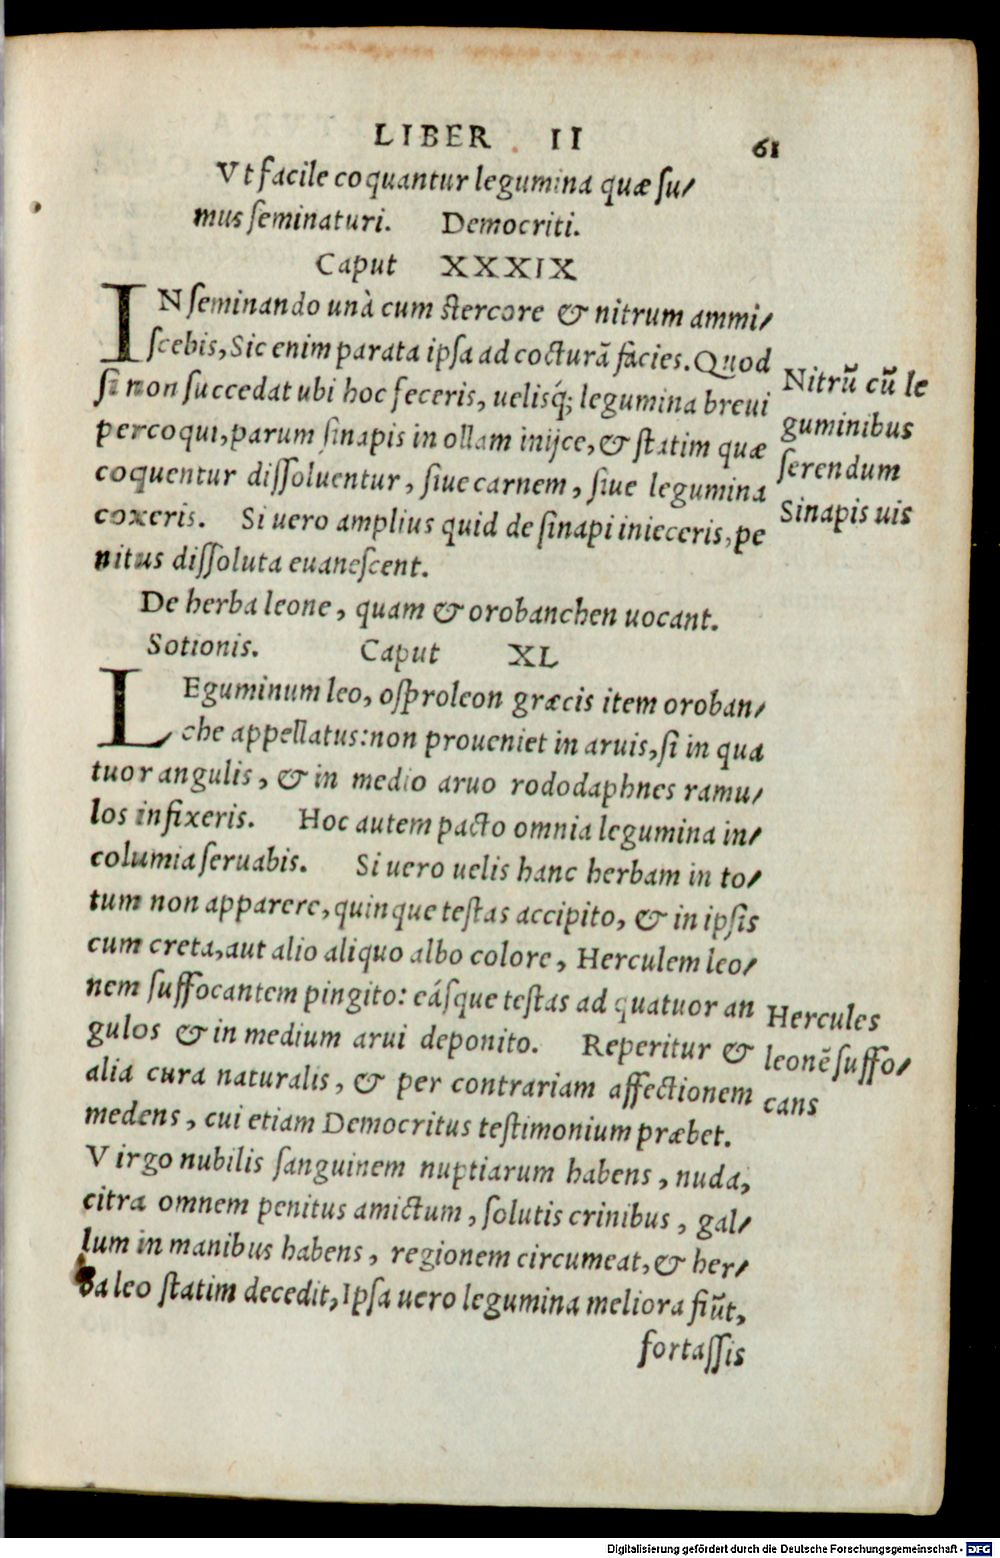 LIBER II 61
Vt facile coquantur legumina quæ su/
mus seminaturi. Democriti.
Caput XXXIX
IN seminando unà cum stercore & nitrum ammi/
scebis, Sic enim parata ipsa ad cocturā facies. Quod
si non succedat ubi hoc feceris, uelisq́; legumina breui
percoqui, parum sinapis in ollam inijce, & statim quæ
coquentur dissoluentur, siue carnem, siue legumina
coxeris. Si uero amplius quid de sinapi inieceris, pe
nitus dissoluta euanescent.
Nitrū cū le
guminibus
serendum
Sinapis uis
De herba leone, quam & orobanchen uocant.
Sotionis. Caput XL
LEguminum leo, osproleon græcis item oroban/
che appellatus: non proueniet in aruis, si in qua
tuor angulis, & in medio aruo rododaphnes ramu/
los infixeris. Hoc autem pacto omnia legumina in/
columia seruabis. Si uero uelis hanc herbam in to/
tum non apparere, quinque testas accipito, & in ipsis
cum creta, aut alio aliquo albo colore, Herculem leo/
nem suffocantem pingito: eásque testas ad quatuor an
gulos & in medium arui deponito. Reperitur &
alia cura naturalis, & per contrariam affectionem
medens, cui etiam Democritus testimonium præbet.
Virgo nubilis sanguinem nuptiarum habens, nuda,
citra omnem penitus amictum, solutis crinibus, gal/
lum in manibus habens, regionem circumeat, & her/
ba leo statim decedit, Ipsa uero legumina meliora fiūt,
fortassis
Hercules
leonē suffo/
cans
Digitalisierung gefördert durch die Deutsche Forschungsgemeinschaft - DFG